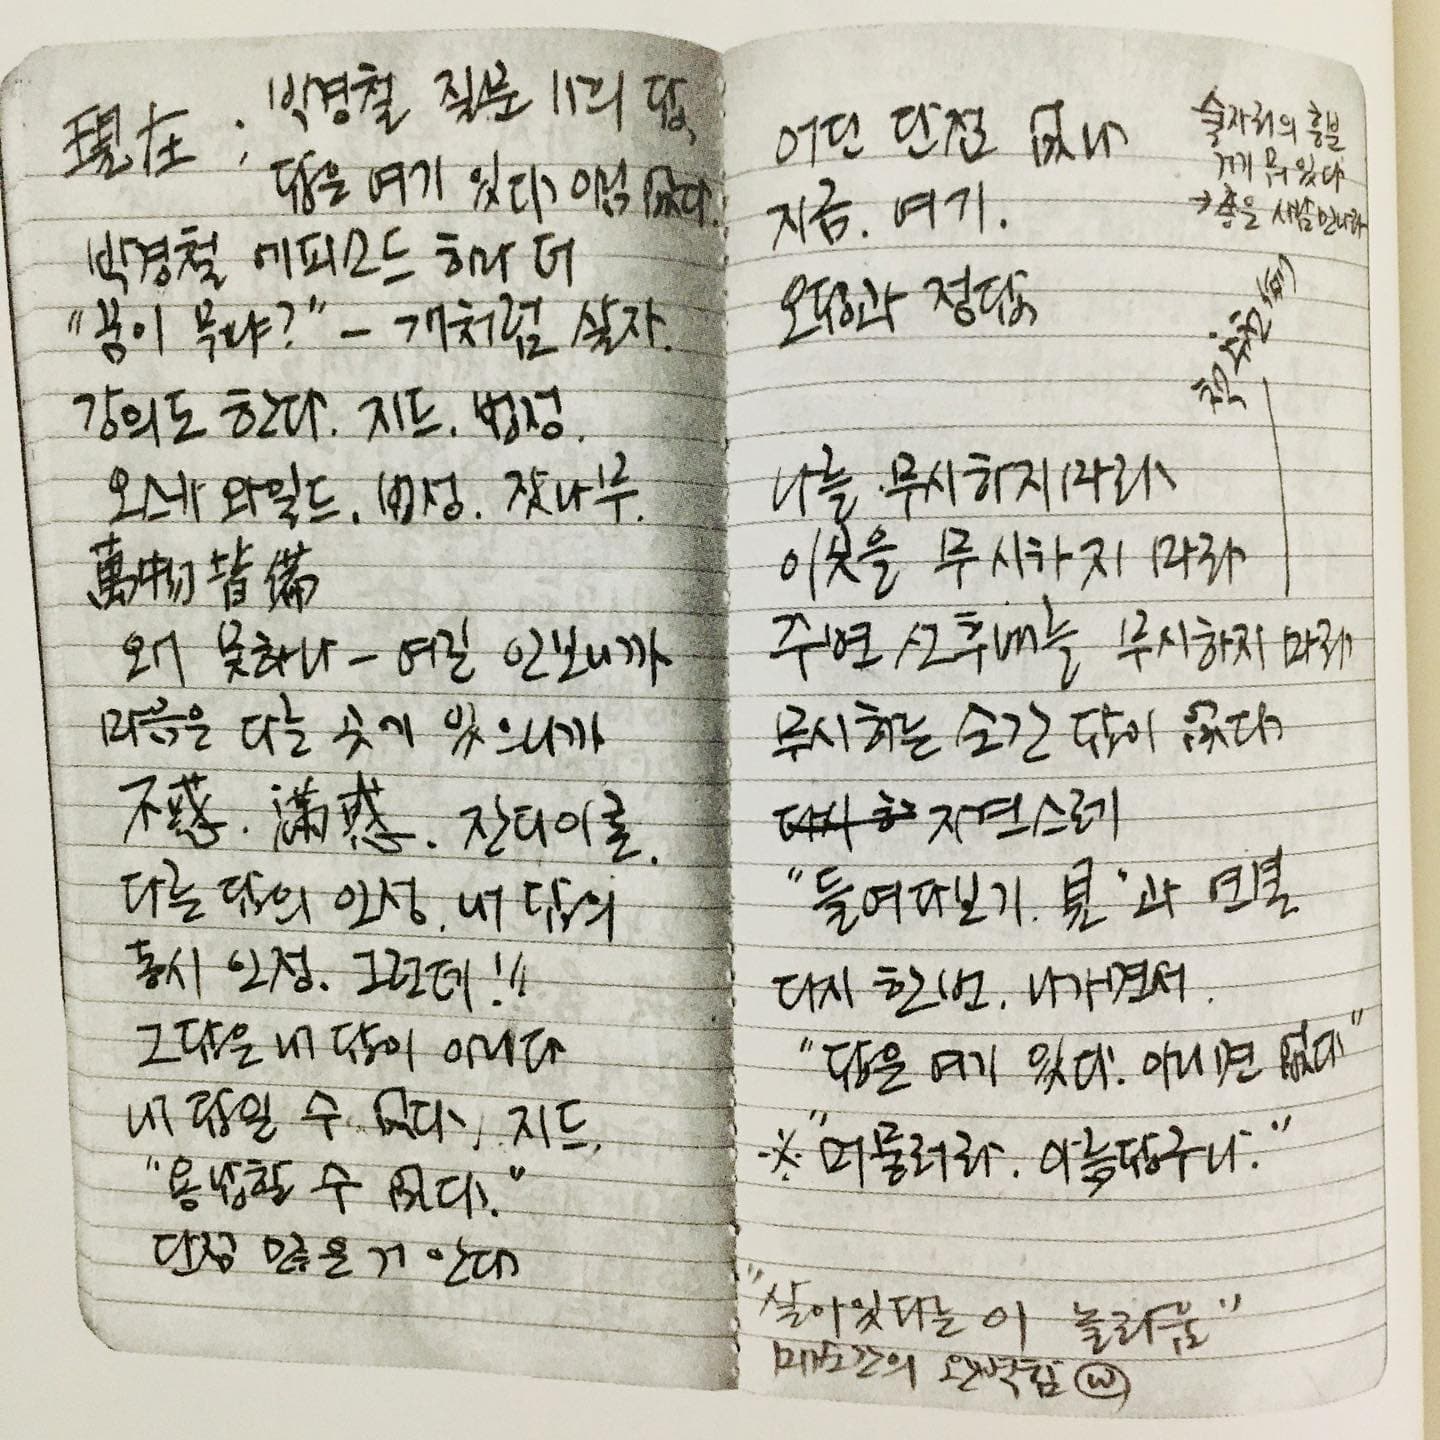 現在 : 박경철 질문 나의 답,
답은 여기 있다, 아님 없다.
박경철 에피소드 하나 더
"꿈이 뭐냐?" - 개처럼 살자.
강의도 한다. 지드. 법성.
오스카 와일드. 법성. 잣나무.
萬物皆備
왜 못하나 - 여길 안보니까
마음은 다른 곳에 있으니까
不惑. 滿惑. 잔디이론.
다른 답의 인정. 내 답의
동시 인정. 그런데!!
그 답은 내 답이 아니다
내 답일 수 없다, 지드.
"용납할 수 없다."
단점 만은거 안다
어떤 단점 없나
지금. 여기.
오답과 정답
술자리의 흥분
거기 뭐 있다
→ 좋은 사람 만나라
나를 무시하지 마라
이것을 무시하지 마라
주변 선후배를 무시하지 마라
무시하는 순간 답이 없다
자연스레
"들여다보기. 見"과 연결
다시 한번. 나가면서.
"답은 여기 있다. 아니면 없다"
※ "머물러라. 아름답구나."
"살아있다는 이 놀라움"
매순간의 완벽함 ⓦ